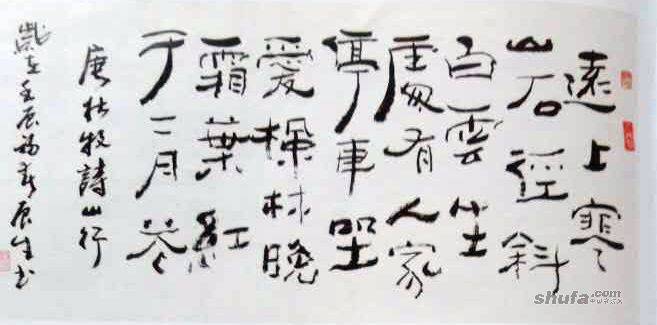 遠上寒
山石徑斜
白雲生
處有人家
停車坐
愛楓林晚
霜葉紅
于二月花
唐杜牧詩山行
歲在壬辰
shufa.com